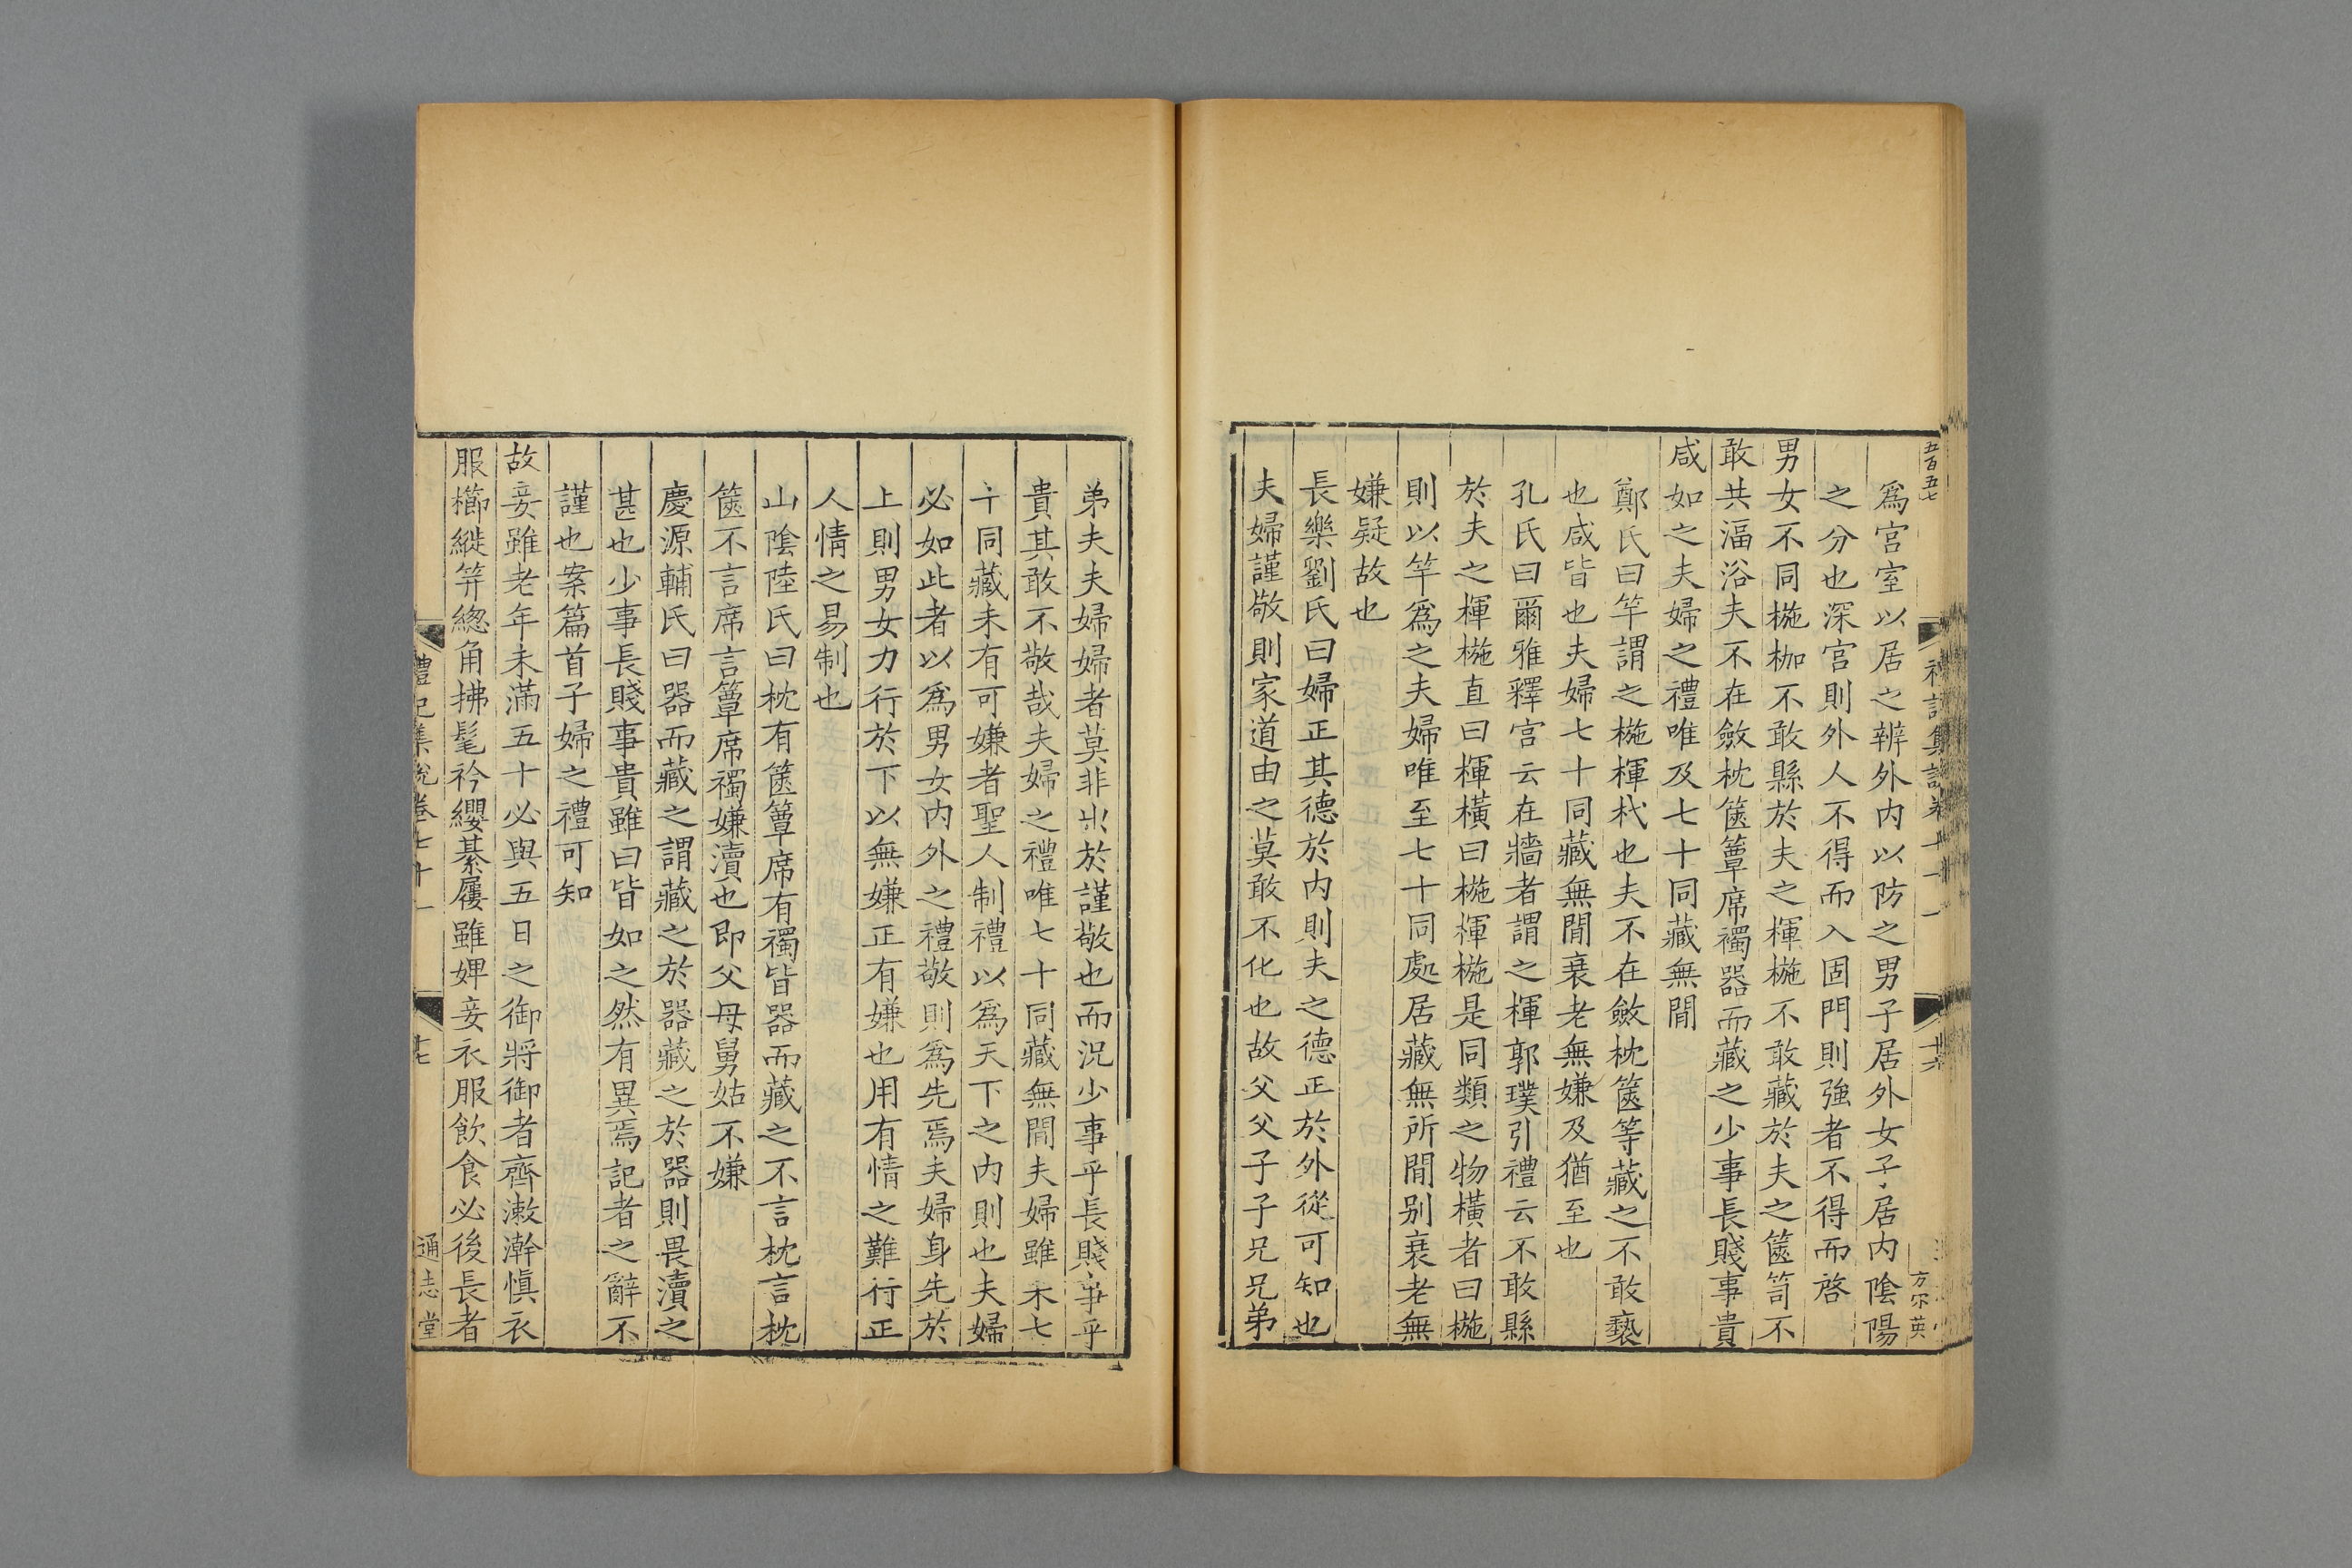 五百五七
禮記集說卷七十一
十六
方尔英
爲宮室以居之辨外内以防之男子居外女子居内陰陽
之分也深宮則外人不得而入固門則強者不得而啓
男女不同椸枷不敢縣於夫之楎椸不敢藏於夫之篋笥不
敢共湢浴夫不在斂枕篋簟席襡器而藏之少事長賤事貴
咸如之夫婦之禮唯及七十同藏無間
鄭氏曰竿謂之椸楎杙也夫不在斂枕篋等藏之不敢褻
也咸皆也夫婦七十同藏無間衰老無嫌及猶至也
孔氏曰爾雅釋宮云在牆者謂之楎郭璞引禮云不敢縣
於夫之楎椸直曰楎橫曰椸楎椸是同類之物橫者曰椸
則以竿爲之夫婦唯至七十同處居藏無所間别衰老無
嫌疑故也
長樂劉氏曰婦正其德於内則夫之德正於外從可知也
夫婦謹敬則家道由之莫敢不化也故父父子子兄兄弟
弟夫夫婦婦者莫非出於謹敬也而況少事乎長賤事乎
貴其敢不敬哉夫婦之禮唯七十同藏無間夫婦雖未七
十同藏未有可嫌者聖人制禮以爲天下之内則也夫婦
必如此者以爲男女内外之禮敬則爲先焉夫婦身先於
上則男女力行於下以無嫌正有嫌也用有情之難行正
人情之易制也
山陰陸氏曰枕有篋簟席有襡皆器而藏之不言枕言枕
篋不言席言簟席襡嫌瀆也即父母舅姑不嫌
慶源輔氏曰器而藏之謂藏之於器藏之於器則畏瀆之
甚也少事長賤事貴雖曰皆如之然有異焉記者之辭不
謹也案篇首子婦之禮可知
故妾雖老年未滿五十必與五日之御將御者齊漱澣愼衣
服櫛縰笄總角拂髦衿纓綦屨雖婢妾衣服飲食必後長者
禮記集說卷七十一
十七
通志堂